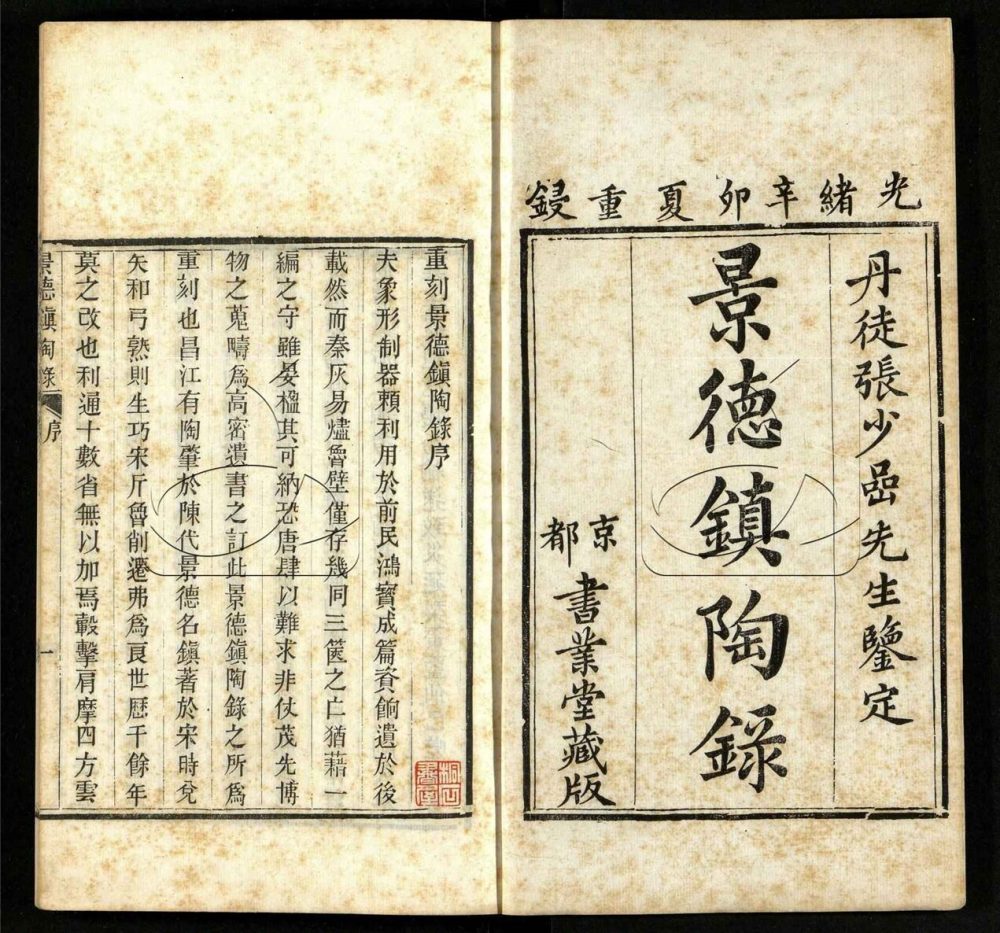 光緒辛卯夏重鋟
丹徒張少嵒先生鑒定
景德鎮陶錄
京都
書業堂藏版
重刻景德鎮陶錄序
夫象形制器賴利用於前民鴻寶成篇資餉遺於後
載然而秦灰易燼魯壁僅存幾同三篋之亡猶藉一
編之守雖晏楹其可納恐唐肆以難求非仗茂先博
物之蒐疇爲高密遺書之訂此景德鎮陶錄之所爲
重刻也昌江有陶肇於陳代景德名鎮著於宋時兌
矢和弓熟則生巧宋斤魯削遷弗爲良世歷千餘年
莫之改也利通十數省無以加焉轂擊肩摩四方雲
景德鎮陶錄 序 一